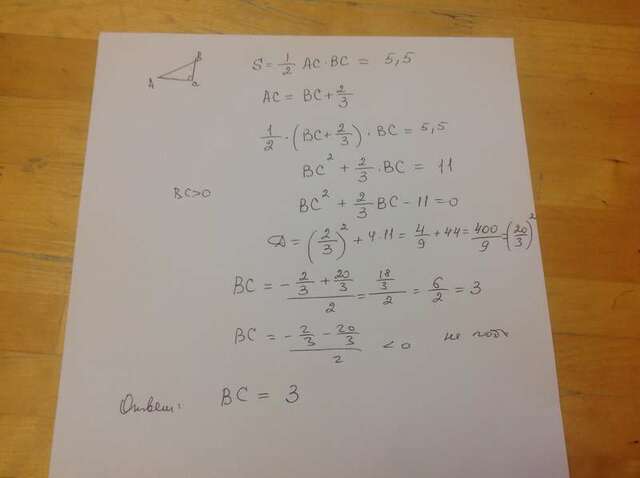 A B C
S = 1/2 AC · BC = 5,5
AC = BC + 2/3
1/2 · (BC + 2/3) · BC = 5,5
BC² + 2/3 · BC = 11
BC>0
BC² + 2/3 BC - 11 = 0
D = (2/3)² + 4·11 = 4/9 + 44 = 400/9 = (20/3)²
BC = (-2/3 + 20/3)/2 = (18/3)/2 = 6/2 = 3
BC = (-2/3 - 20/3)/2 < 0 не
Ответ: BC = 3